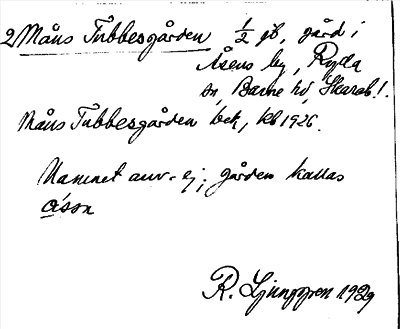 2 Måns Tubbesgården 1/2 gd, gård i
Åsens by, Ryda
sn, Barne hd, Skarab. l.
Måns Tubbesgården bek, kb 1926.
Namnet anv. ej; gården kallas
åsen
R. Ljunggren 1929